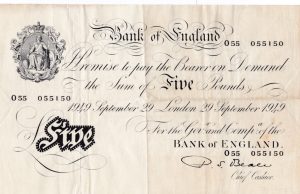 Bank of England
O55 055150
I Promise to pay the Bearer on Demand
the Sum of Five Pounds
O55 055150
1949 September 29 London 29 September 1949
For the Govr. and Compa. of the
BANK OF ENGLAND.
Five
O55 055150
P. S. Beale
Chief Cashier